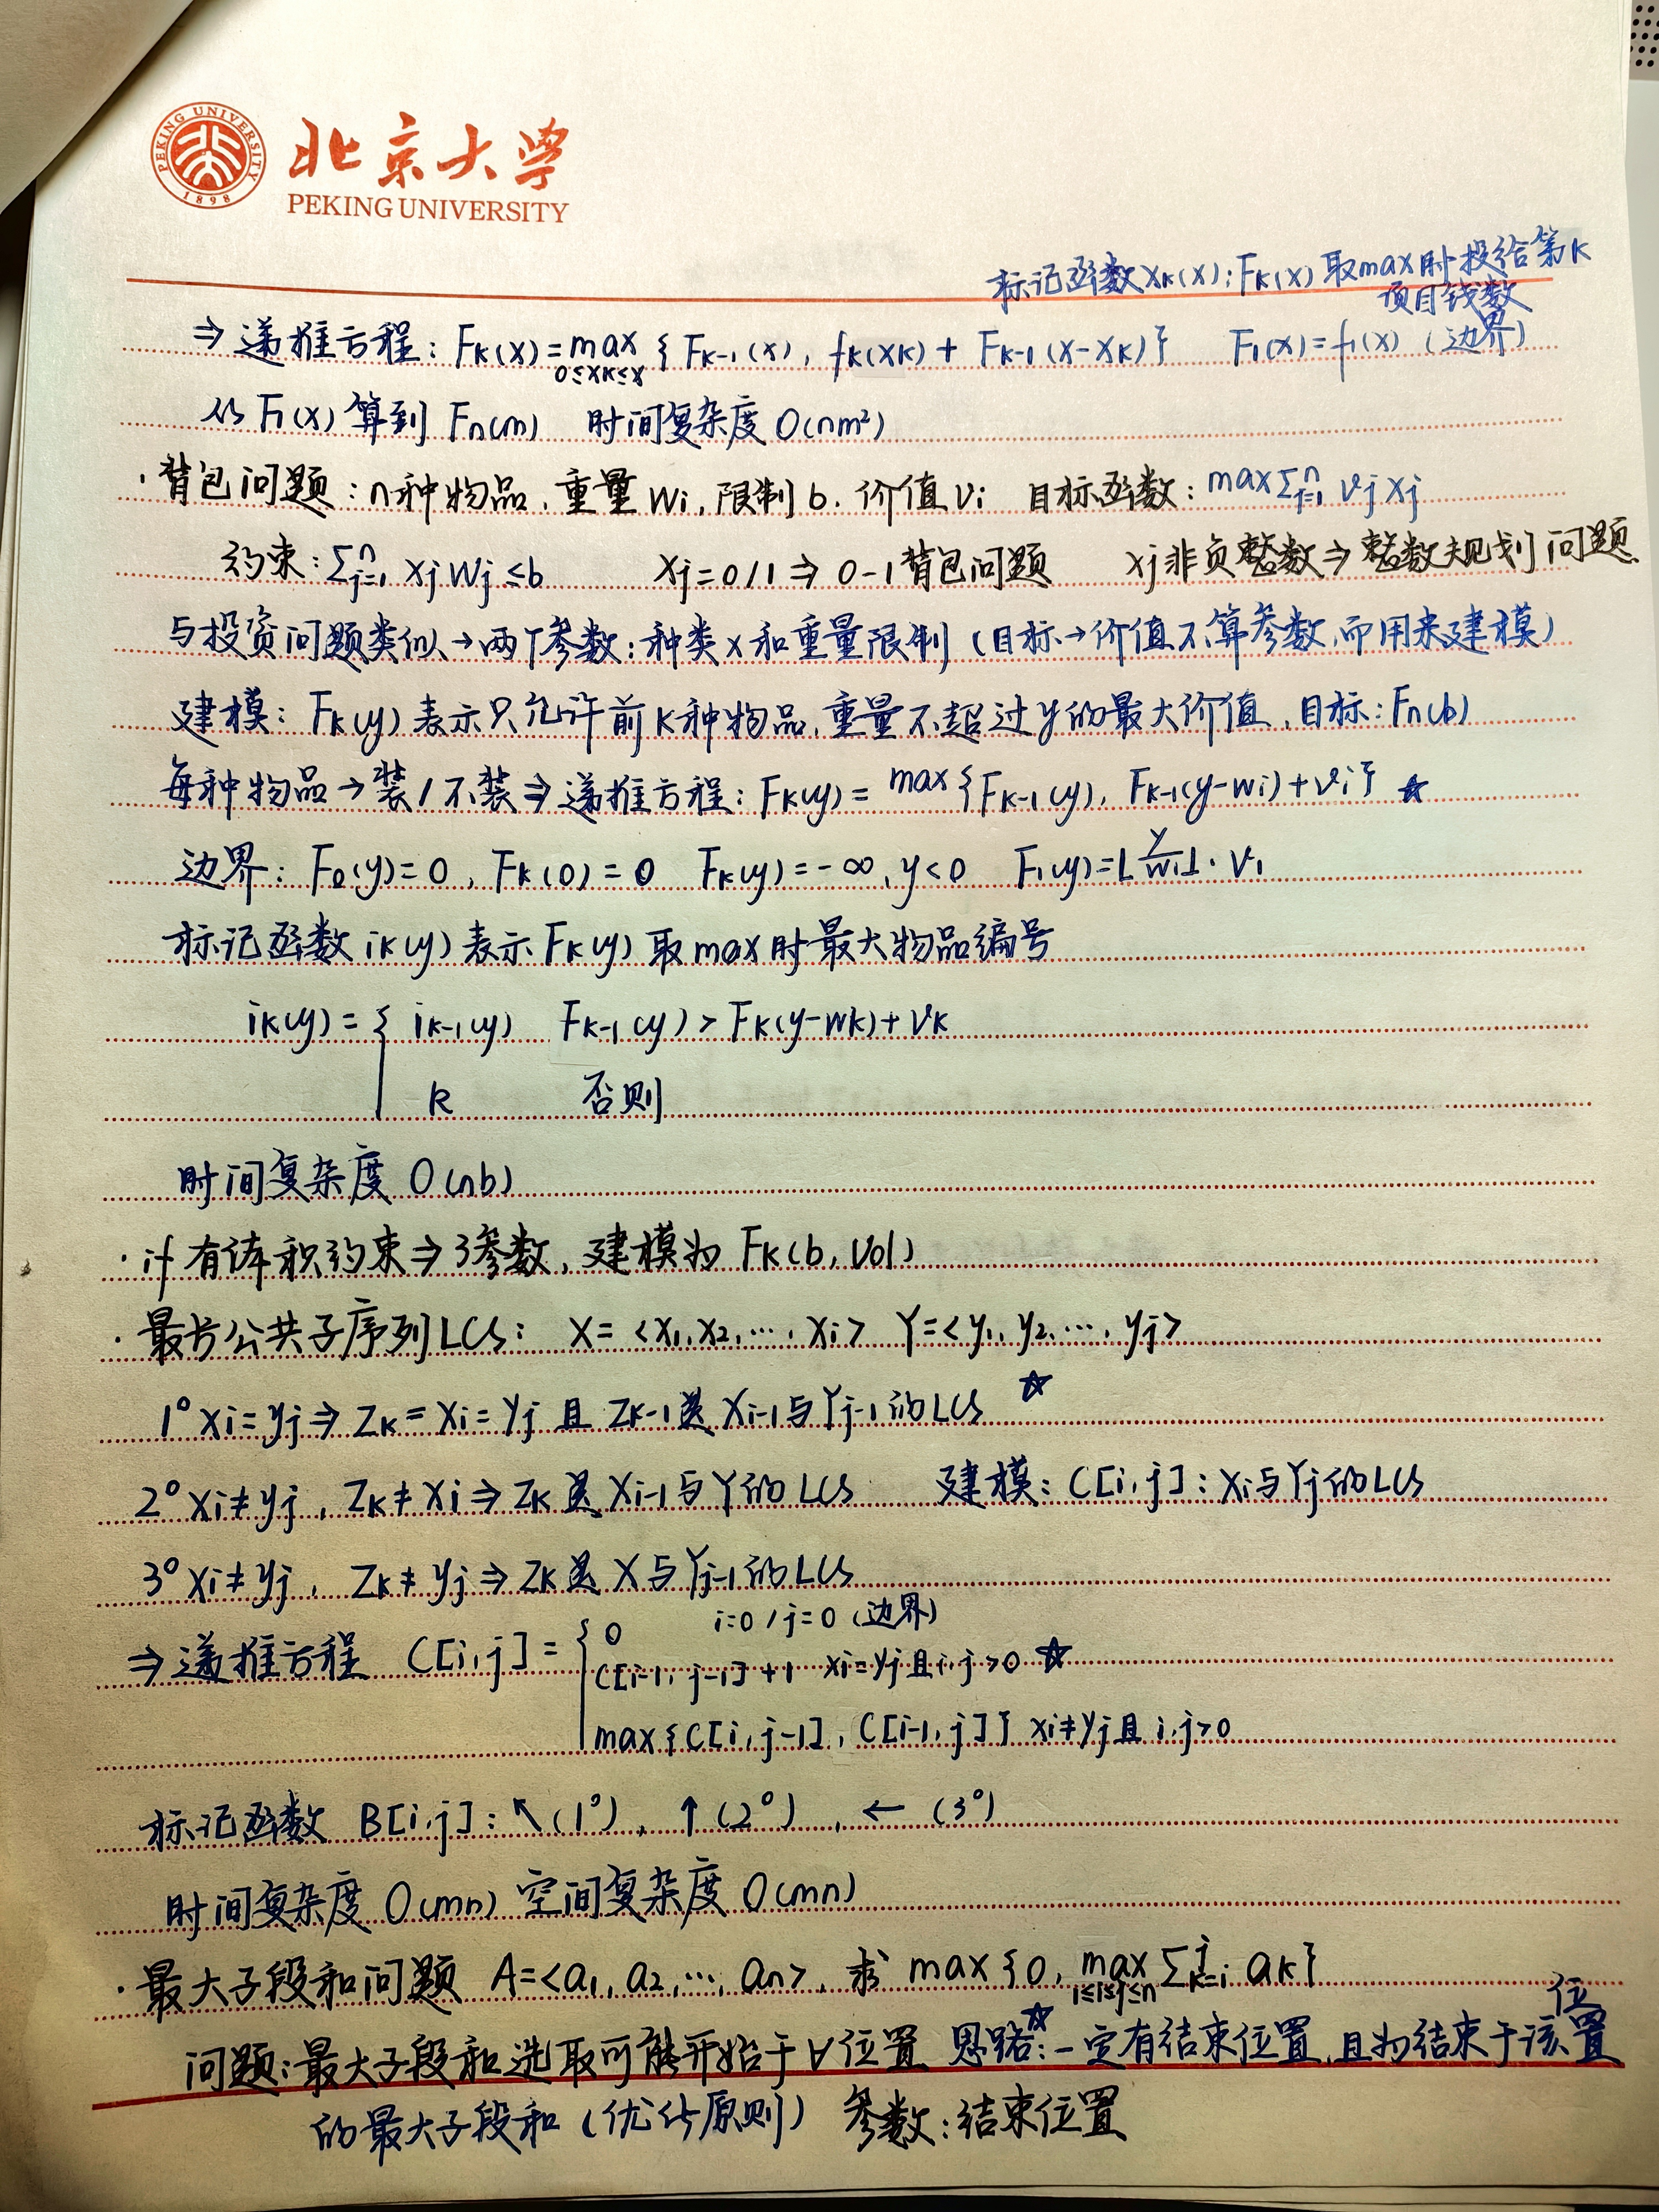 PEKING UNIVERSITY
1898
北京大学
PEKING UNIVERSITY
标记函数XK(X):FK(X)取max时投给第K
项目钱数
⇒递推方程:FK(X)=max{FK-1(X), fK(XK)+FK-1(X-XK)} F1(X)=f1(X)(边界)
0≤XK≤X
从F1(X)算到Fn(m) 时间复杂度O(nm²)
·背包问题:n种物品,重量Wi,限制b.价值Vi 目标函数:max∑ⁿj=1 VjXj
约束:∑ⁿj=1 XjWj≤b Xj=0/1⇒0-1背包问题 Xj非负整数⇒整数规划问题
与投资问题类似→两个参数:种类x和重量限制(目标→价值不算参数,而用来建模)
建模:FK(y)表示只允许前K种物品,重量不超过y的最大价值,目标:Fn(b)
每种物品→装/不装⇒递推方程:FK(y)=max{FK-1(y), FK-1(y-wi)+vi} ☆
边界:F0(y)=0, FK(0)=0 FK(y)=-∞,y<0 F1(y)=⌊y/w1⌋·V1
标记函数iK(y)表示FK(y)取max时最大物品编号
iK(y)={ iK-1(y) FK-1(y)>FK(y-wK)+VK
k 否则
时间复杂度O(nb)
·if有体积约束⇒3参数,建模为FK(b,Vol)
·最长公共子序列LCS: X=<X1,X2,…,Xi> Y=<y1,y2,…,yj>
1°Xi=yj⇒ZK=Xi=Yj且ZK-1是Xi-1与Yj-1的LCS ☆
2°Xi≠yj,ZK≠Xi⇒ZK是Xi-1与Y的LCS 建模:C[i,j]:Xi与Yj的LCS
3°Xi≠yj,ZK≠yj⇒ZK是X与Yj-1的LCS
⇒递推方程 C[i,j]={ 0 i=0/j=0(边界)
C[i-1,j-1]+1 xi=yj且i,j>0 ☆
max{C[i,j-1],C[i-1,j]} xi≠yj且i,j>0
标记函数 B[i,j]:↖(1°),↑(2°),←(3°)
时间复杂度O(mn) 空间复杂度O(mn)
·最大子段和问题 A=<a1,a2,…,an>,求 max{0, max ∑ʲk=i aK}
1≤i≤j≤n
问题:最大子段和选取可能开始于∀位置 思路☆:一定有结束位置,且为结束于该位置
的最大子段和(优化原则) 参数:结束位置